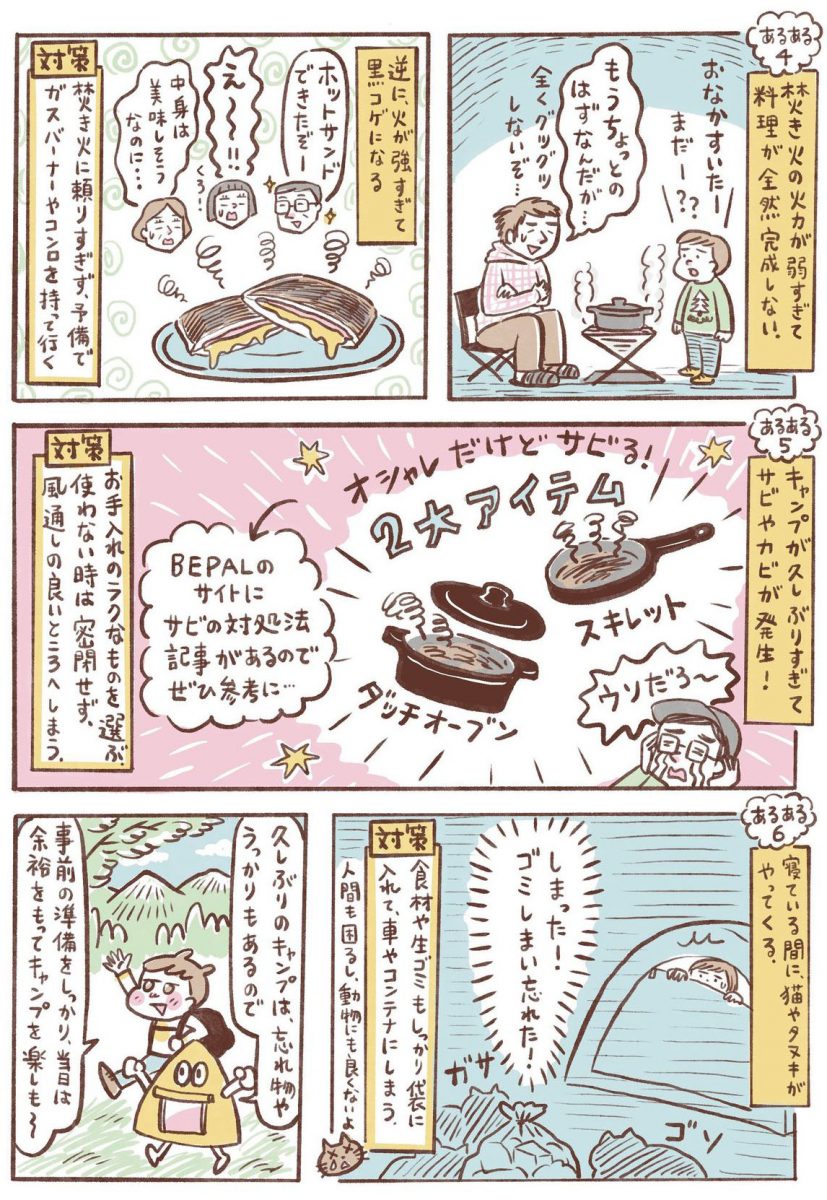 あるある
4
焚き火の火力が弱すぎて
料理が全然完成しない。
おなかすいたー
まだー??
もうちょっとの
はずなんだが…
全くグツグツ
しないぞ…
逆に、火が強すぎて
黒コゲになる
ホットサンド
できたぞー
え〜〜!!
くろ!
中身は
美味しそう
なのに…
対策
焚き火に頼りすぎず、予備で
ガスバーナーやコンロを持って行く
あるある
5
キャンプが久しぶりすぎて
サビやカビが発生!
オシャレだけどサビる!
2大アイテム
スキレット
ダッチオーブン
ウソだろ〜
BEPALの
サイトに
サビの対処法
記事があるので
ぜひ参考に…
対策
お手入れのラクなものを選ぶ。
使わない時は密閉せず、
風通しの良いところへしまう。
あるある
6
寝ている間に、猫やタヌキが
やってくる。
しまった!
ゴミしまい忘れた!
ガサ
ゴソ
対策
食材や生ゴミもしっかり袋に
入れて、車やコンテナにしまう。
人間も困るし、動物にも良くないよ
久しぶりのキャンプは、忘れ物や
うっかりもあるので
事前の準備をしっかり、当日は
余裕をもってキャンプを楽しも〜